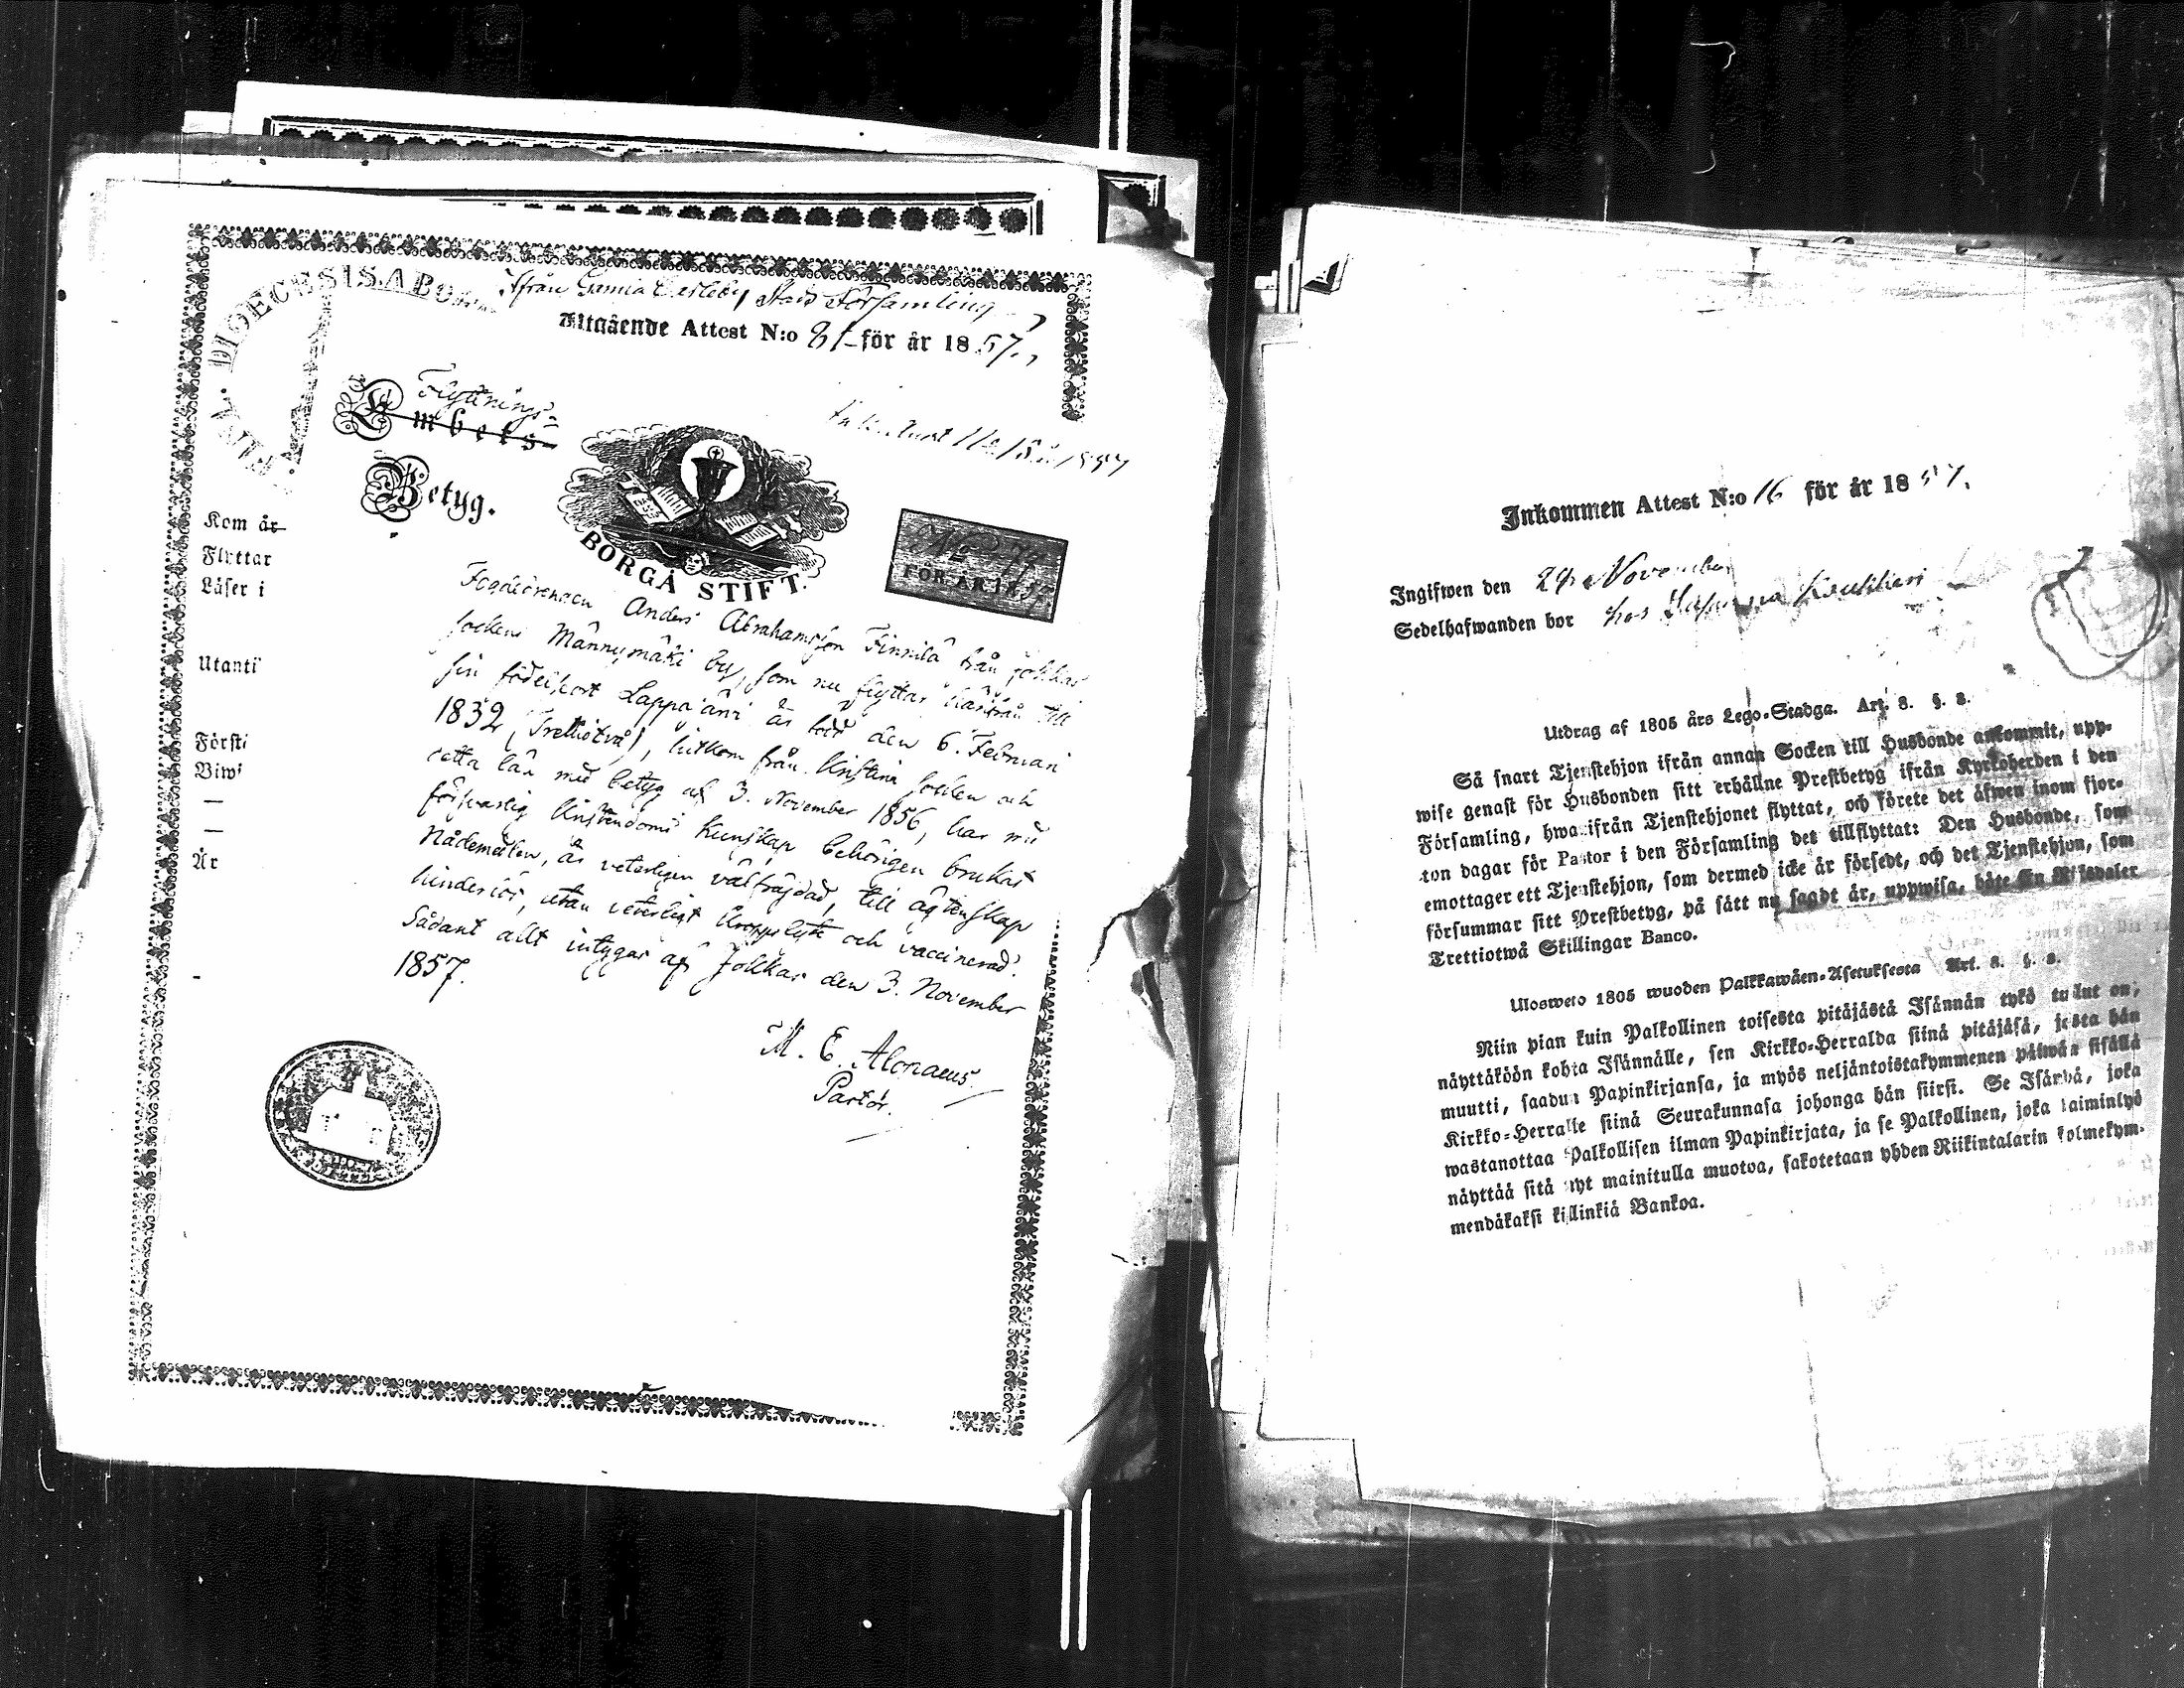 DIOECESIS ABO
Ifrån Gamla Carleby Stads Församling
Utgående Attest N:o 81 för år 1857.
Flyttnings=
Embets-
Betyg.
BORGÅ STIFT.
No 77
FÖR ÅR 1857
Kom år
Flyttar
Läser i
Utanti
Försti
Biwi
—
—
År
Fogdedrengen Anders Abrahamsson Finnilä från Jokkas
sockens Männymäki by, som nu flyttar härifrån till
sin födelseort Lappajärvi är född den 6. Februari
1832, (Trettiotvå), hitkom från Kristina socken och
detta län med betyg af 3. November 1856, har med
försvarlig kristendoms kunskap behörigen brukat
Nådemedlen, är veterligen välfrejdad, till ägtenskap
hinderlös, utan veterligt kroppslyte och vaccinerad.
Sådant allt intygas af Jokkas den 3. November
1857.
M. E. Alopaeus
Pastor.
Inkommen Attest N:o 16 för år 1857.
Ingifwen den 29 November
Sedelhafwanden bor hos
Utdrag af 1805 års Lego-Stadga. Art. 8. §. 8.
Så snart Tjenstehjon ifrån annan Socken till Husbonde ankommit, upp-
wise genast för Husbonden sitt erhållne Prestbetyg ifrån Kyrkoherden i den
Församling, hwarifrån Tjenstehjonet flyttat, och förete det äfwen inom fjor-
ton dagar för Pastor i den Församling det tillflyttat: Den Husbonde, som
emottager ett Tjenstehjon, som dermed icke är försedt, och det Tjenstehjon, som
försummar sitt Prestbetyg, på sätt nu sagdt är, uppwisa, böte En Riksdaler
Trettiotwå Skillingar Banco.
Ulosweto 1805 wuoden Palkkawäen-Asetuksesta Art. 8. §. 8.
Niin pian kuin Palkollinen toisesta pitäjästä Isännän tykö tullut on,
näyttäköön kohta Isännälle, sen Kirkko-Herralda siinä pitäjäsä, josta hän
muutti, saadun Papinkirjansa, ja myös neljäntoistakymmenen päiwän sisällä
Kirkko=Herralle siinä Seurakunnasa johonga hän siirsi. Se Isäntä, joka
wastanottaa Palkollisen ilman Papinkirjata, ja se Palkollinen, joka laiminlyö
näyttää sitä nyt mainitulla muotoa, sakotetaan yhden Riikintalarin kolmekym-
mendäkaksi killinkiä Bankoa.